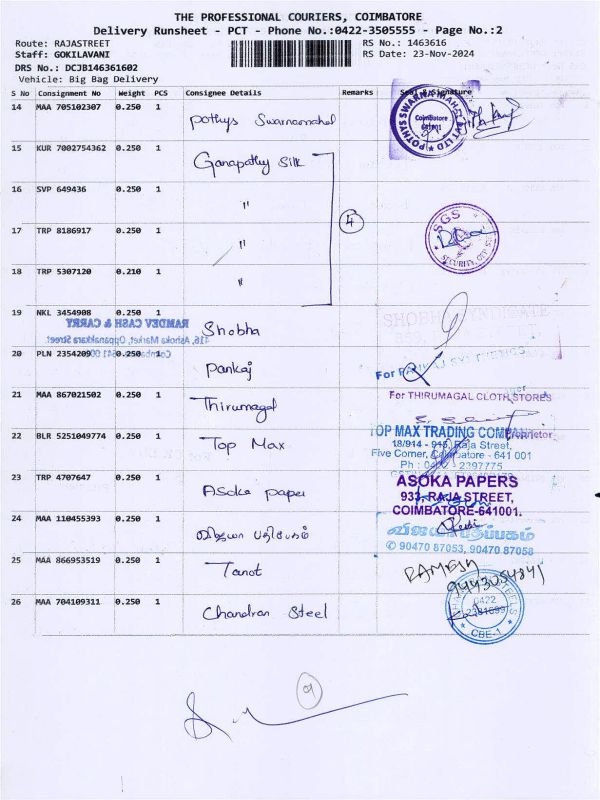 THE PROFESSIONAL COURIERS, COIMBATORE
Delivery Runsheet - PCT - Phone No.:0422-3505555 - Page No.:2
Route: RAJASTREET RS No.: 1463616
Staff: GOKILAVANI RS Date: 23-Nov-2024
DRS No.: DCJB146361602
Vehicle: Big Bag Delivery
S No Consignment No Weight PCS Consignee Details Remarks Seal & Signature
14 MAA 705102307 0.250 1 Pothys Swarnamahal
POTHYS SWARNA MAHAL PVT LTD
Coimbatore
641001
15 KUR 7002754362 0.250 1 Ganapathy Silk
16 SVP 649436 0.250 1 "
4
17 TRP 8186917 0.250 1 "
SGS
SECURITY
18 TRP 5307120 0.210 1 "
19 NKL 3454908 0.250 1 Shobha
RAMDEV CASH & CARRY
416, Ashoka Market, Oppanakkara Street
SHOBHA SYNDICATE
20 PLN 2354209 0.250 1 Pankaj
For
21 MAA 867021502 0.250 1 Thirumagal
For THIRUMAGAL CLOTH STORES
Proprietor
22 BLR 5251049774 0.250 1 Top Max
TOP MAX TRADING COMPANY
18/914 - 915, Raja Street,
Five Corner, Coimbatore - 641 001
Ph : 0422 - 2397775
23 TRP 4707647 0.250 1 Asoka paper
ASOKA PAPERS
933, RAJA STREET,
COIMBATORE-641001.
24 MAA 110455393 0.250 1 விஜயா பதிப்பகம்
விஜயா பதிப்பகம்
90470 87053, 90470 87058
25 MAA 866953519 0.250 1 Tanot
RAMESH
9443054841
26 MAA 704109311 0.250 1 Chandran Steel
0422
2381699
CBE-1
9